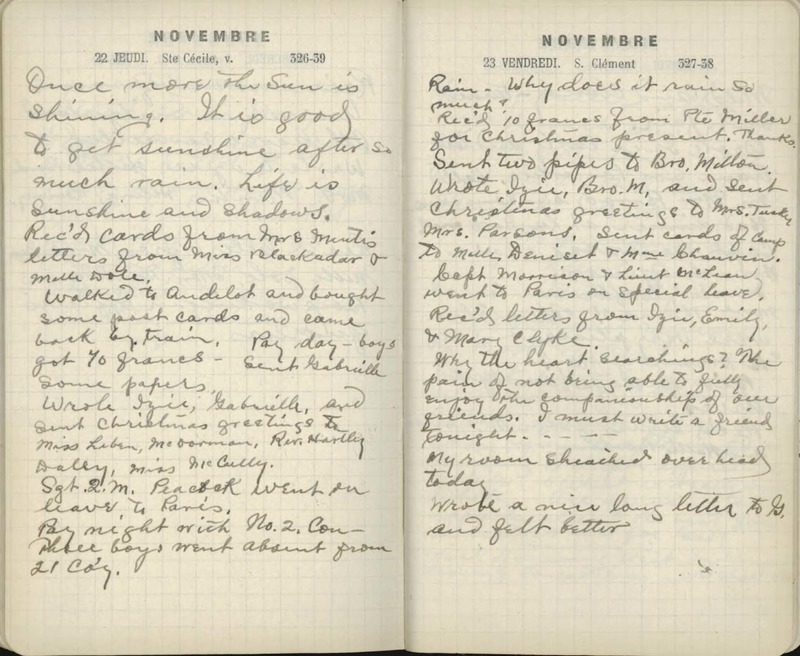 NOVEMBRE
22 JEUDI. Ste Cécile, v. 326-39
Once more the Sun is
shining. It is good
to get sunshine after so
much rain. Life is
sunshine and shadows.
Rec'd cards from Mrs Mintis
letters from Miss Blackadar &
Mlle Dole.
Walked to Andelot and bought
some post cards and came
back by train. Pay day - boys
got 70 francs - Sent Gabrielle
some papers.
Wrote Izie, Gabrielle, and
sent Christmas greetings to
Miss Liben, McDorman, Rev. Hartley
Daley, Miss McCully.
Sgt. Q. M. Peacock went on
leave to Paris.
Pay night with No. 2. Con-
Three boys went absent from
21 Co'y.
NOVEMBRE
23 VENDREDI. S. Clément 327-38
Rain - Why does it rain so
much?
Rec'd 10 francs from Pte Miller
for Christmas present. Thanks.
Sent two pipes to Bro. Milton.
Wrote Izie, Bro. M, and sent
Christmas greetings to Mrs. Tusky
Mrs. Parsons. Sent cards of Camp
to Mlle Deniset & Mme Chauvin.
Capt Morrison & Lieut McLean
went to Paris on special leave.
Rec'd letters from Izie, Emily,
& Mary Clyke.
Why the heart searchings? The
pain of not being able to fully
enjoy the companionship of our
friends. I must write a friend
tonight. - - - -
My room sheathed over head
today
Wrote a nice long letter to G.
and felt better